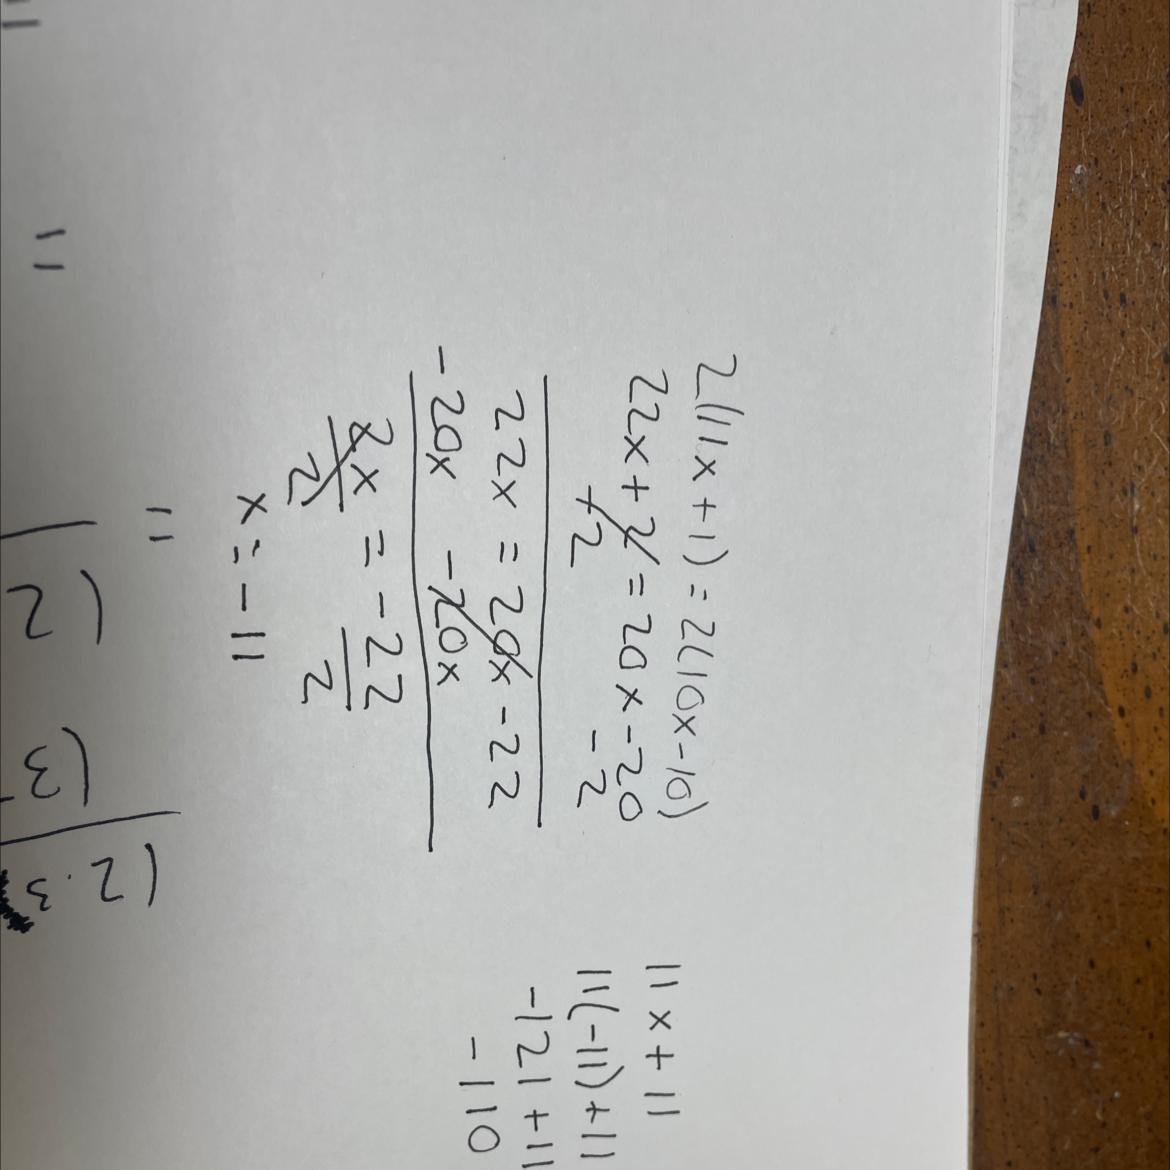 2(11x+1)=2(10x-10)
22x+2=20x-20
+2 -2
22x=20x-22
-20x -20x
2x = -22
2 2
x=-11
11x+11
11(-11)+11
-121+11
-110
=
(2
(3
(2.3
=